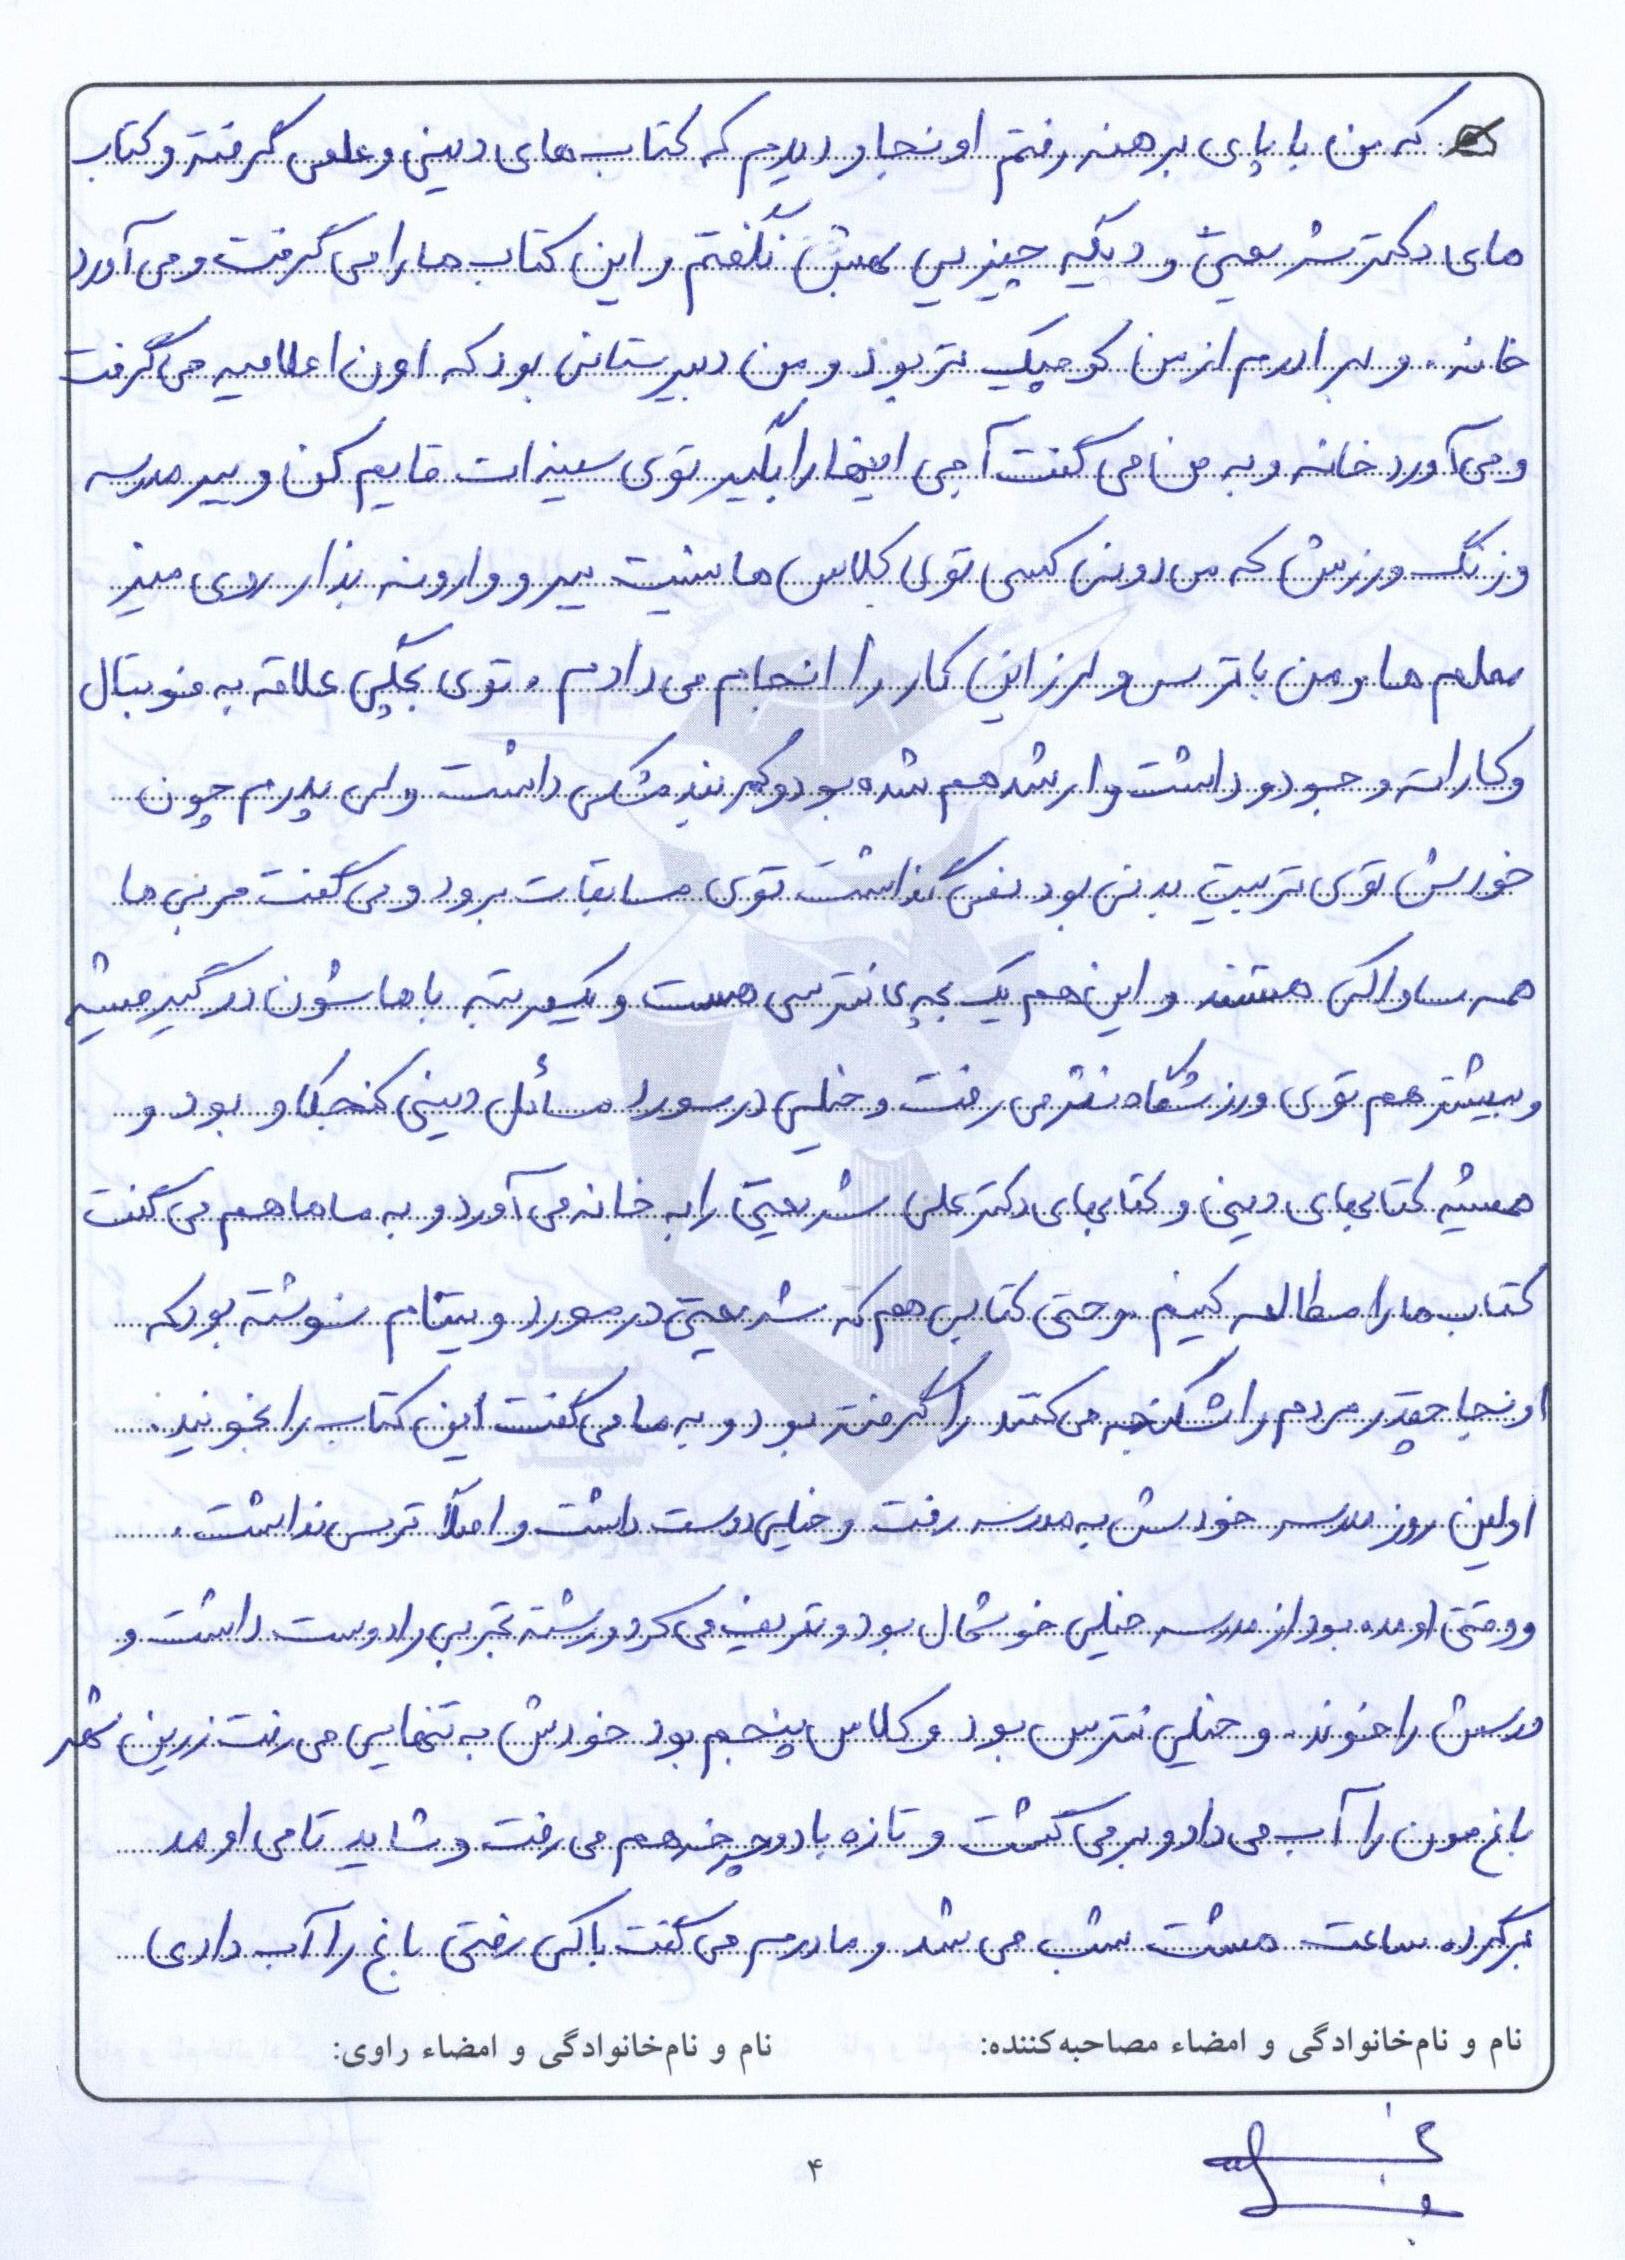 که من با پای برهنه رفتم اونجا و دیدم که کتاب های دینی و علمی گرفته و کتاب
های دکتر شریعتی و دیگه چیزیی بهش نگفتم و این کتاب ها را می گرفت و می آورد
خانه. و برادرم از من کوچیک تر بود و من دبیرستانی بود که اون اعلامیه می گرفت
و می آورد خانه و به من می گفت آجی اینها را بگیر توی سینه ات قایم کن و ببر مدرسه
و زنگ ورزش که می دونی کسی توی کلاس ها نیست ببر و وارونه بذار روی میز
معلم ها و من با ترس و لرز این کار را انجام می دادم. توی بچگی علاقه به فوتبال
و کاراته وجود داشت و ارشد هم شده بود و کمربند مشکی داشت ولی پدرم چون
خودش توی تربیت بدنی بود نمی گذاشت توی مسابقات برود و می گفت مربی ها
همه ساواکی هستند و این هم یک بچه ی نترسی هست و یکمرتبه باهاشون درگیر میشه
و بیشتر هم توی ورزشگاه نشر می رفت و خیلی در مورد مسائل دینی کنجکاو بود و
همیشه کتابهای دینی و کتابهای دکتر علی شریعتی را به خانه می آورد و به ماها هم می گفت
کتاب ها را مطالعه کنیم و حتی کتابی هم که شریعتی در مورد ویتنام نوشته بود که
اونجا چقدر مردم را شکنجه می کنند را گرفته بود و به ما می گفت این کتاب را بخونید.
اولین روز مدرسه خودش به مدرسه رفت و خیلی دوست داشت و اصلاً ترس نداشت.
و وقتی اومده بود از مدرسه خیلی خوشحال بود و تعریف می کرد و رشته تجربی را دوست داشت و
درسش را خوند. و خیلی نترس بود و کلاس پنجم بود خودش به تنهایی می رفت زرین شهر
باغ مون را آب می داد و بر می گشت و تازه با دوچرخه هم می رفت و شاید تا می اومد
برگرده ساعت هشت شب می شد و مادرم می گفت با کی رفتی باغ را آب دادی
نام و نام خانوادگی و امضاء مصاحبه کننده: نام و نام خانوادگی و امضاء راوی:
۴